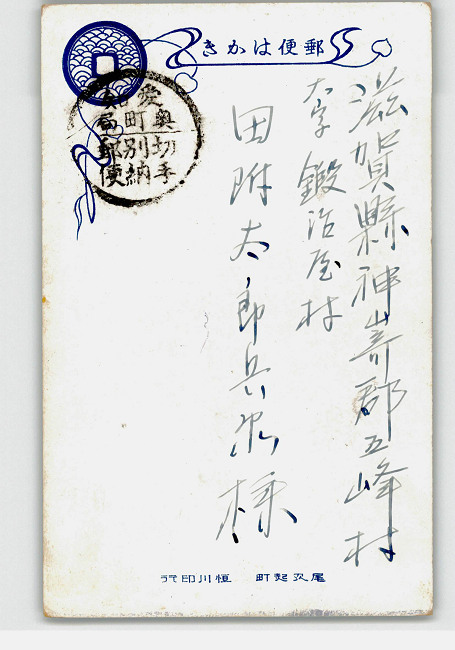 郵便はかき
愛知
奥町局
切手別納郵便
滋賀縣神崎郡五峰村
大字鍛治屋村
田附太郎兵衛様
起町 恒川印行